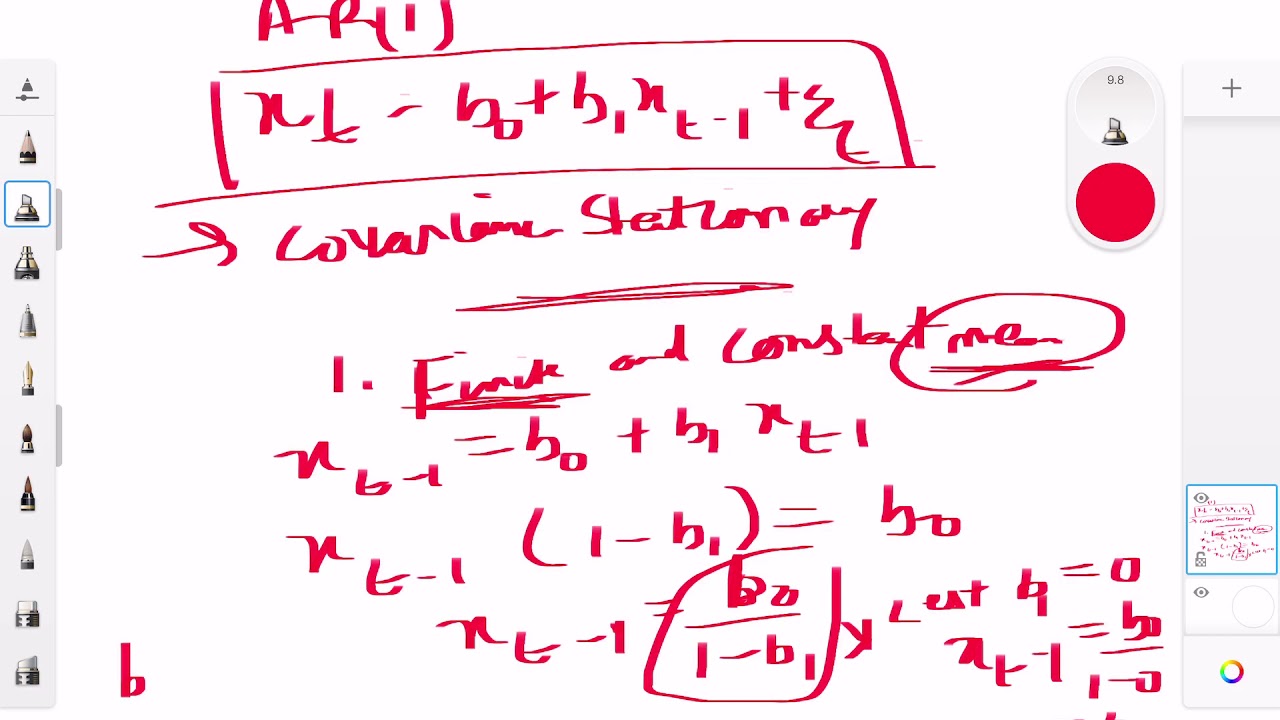 AR(1)
9.8
x_t = b_0 + b_1 x_{t-1} + ε_t
→ Covariance Stationary
1. Finite and constant mean
x_{t-1} = b_0 + b_1 x_{t-1}
x_{t-1} (1 - b_1) = b_0
x_{t-1} = b_0 / (1 - b_1)
Let b_1 = 0
x_{t-1} = b_0 / (1 - 0)
b